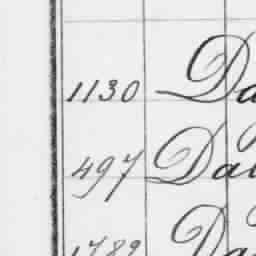 1130 Da
497 Dal
1789 Da